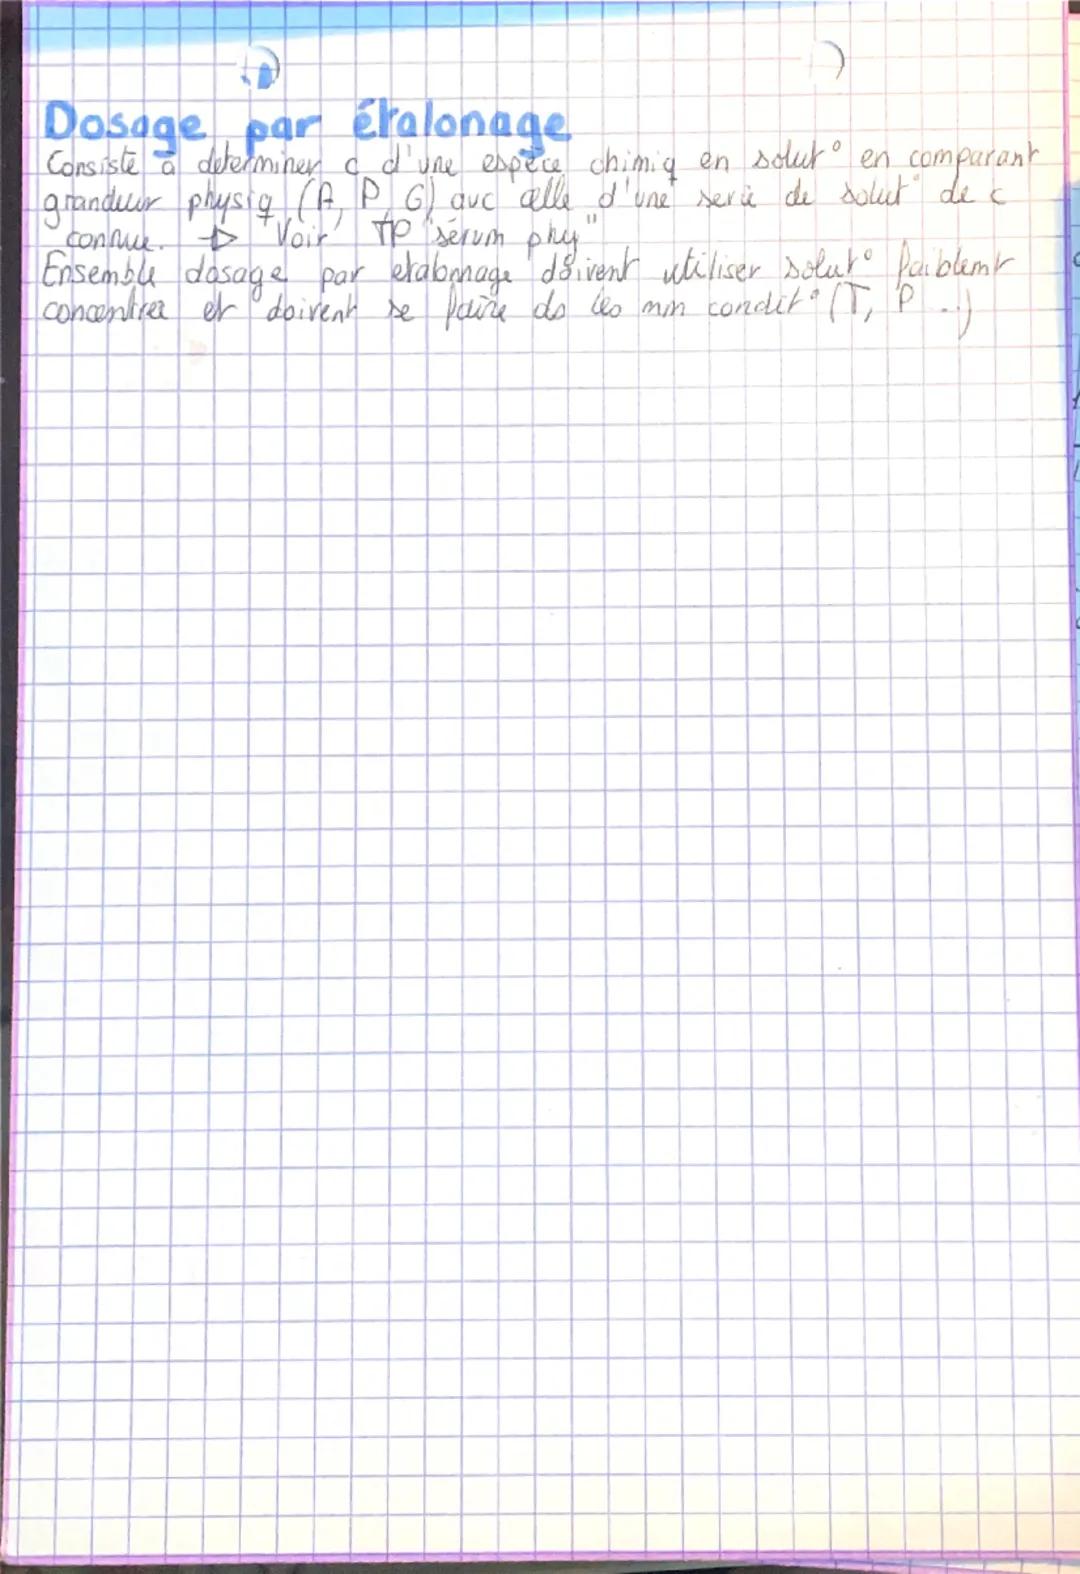 Dosage par étalonage
Consiste à determiner c d'une espèce chimiq en solut° en comparant
grandeur physiq (A, P, G) avc celle d'une serie de solut° de c
connue. → "Voir TP "sérum phy"
Ensemble dosage par etalonnage doivent utiliser solut° faiblemt
concentrer et doivent se faire ds les mm condit° (T, P...)